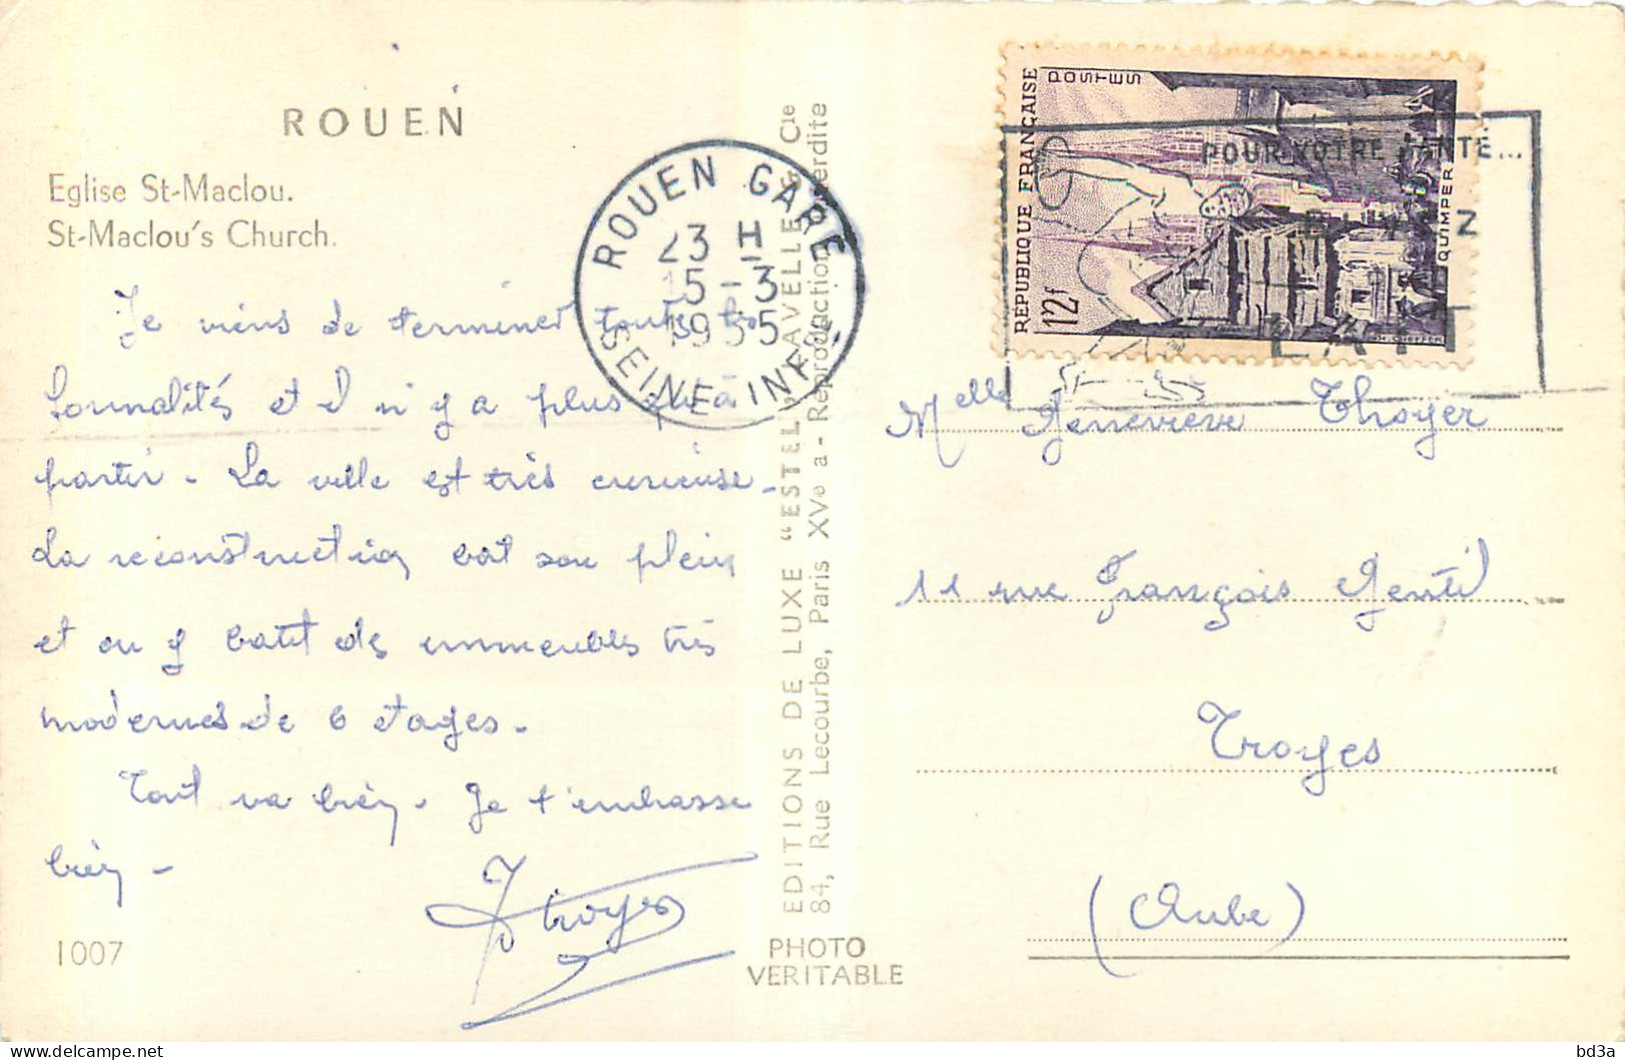 ROUEN
Eglise St-Maclou.
St-Maclou's Church.
Je viens de terminer toutes les
formalités et il n'y a plus qu'à
partir. La ville est très curieuse.
La reconstruction bat son plein
et on y batit des immeubles très
modernes de 6 etages.
Tout va bien. Je t'embrasse
bien.
Thoyer
1007
ROUEN GARE
23 H
15-3
1955
SEINE INFRE
EDITIONS DE LUXE "ESTEL", LAVELLE & Cie
84, Rue Lecourbe, Paris XVe - Reproduction interdite
PHOTO
VERITABLE
REPUBLIQUE FRANÇAISE
POSTES
12f
QUIMPER
H. CHEFFER
POUR VOTRE SANTÉ...
BUVEZ
DU
LAIT
Melle Geneviève Thoyer
11 rue François Gentil
Troyes
(Aube)
bd3a